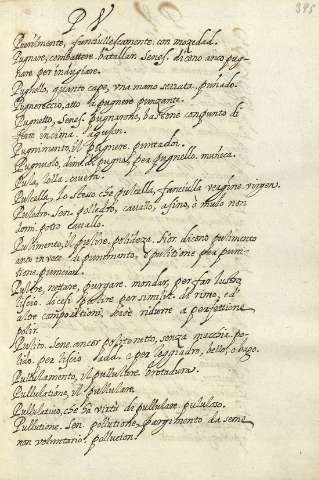 395
P V
Puerilmente, fanciullescamente. con mozedad.
Pugnare, combattere. batallar. Senes. dicono anco pugnare per mangiare.
Pugnello, quanto cape una mano serrata. puñado.
Pugnereccio, atto à pugnere punzante.
Pugnetto, Senes. pugnaruolo, bastone con punto di
ferro in cima. aguijon.
Pugnimento, il pugnere. puntador.
Pugnuolo, dimi. di pugno, per pugnello. muñeca.
Pula, lolla.
Pulcella, lo stesso che pulzella, fanciulla vergine. virgen.
Puledro. Sen. polledro, cavallo, asino, ò mulo non
dom. potro cavallo.
Pulimento, il pulire. polideza. Fior. dicono pulimento
anco in vece di punimento, e pulitione per puni-
tione. puniciad.
Pulire, nettare, purgare. mondar, per far lustro
liscio. dicesi pulire per simil. di rime, ed
altre compositioni, cioè ridurre a perfettione
polir.
Pulito. Sene. ancor polito netto, senza macchia. po-
lido. per liscio per leggiadro, bello, e vago.
Pullulamento, il pullulare. brotadura.
Pullulatione, il pullulare.
Pullulativo, che hà virtù di pullulare. pululoso.
Pullutione. Sen. pollutione, spargimento da seme
non voluntario. pollucion.